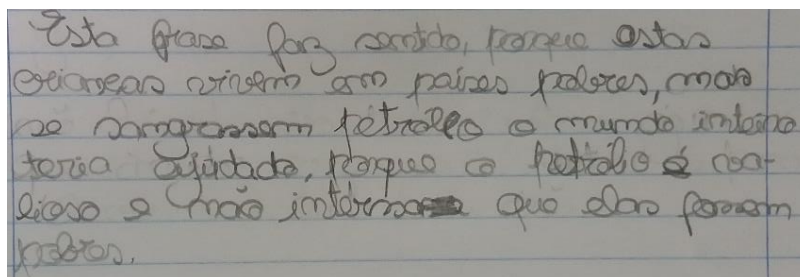 Esta frase faz sentido, porque estas
crianças vivem em países pobres, mas
se sangrassem petróleo o mundo inteiro
teria ajudado, porque o petróleo é va-
lioso e não interessa que elas fossem
pobres.